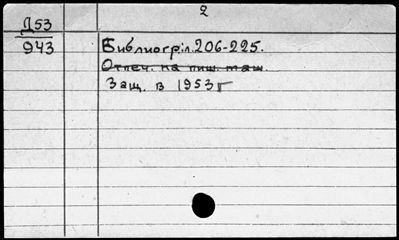 2
Д53
943
Библиогр: л. 206-225.
Отпеч. на пиш. маш.
Защ. в 1953 г